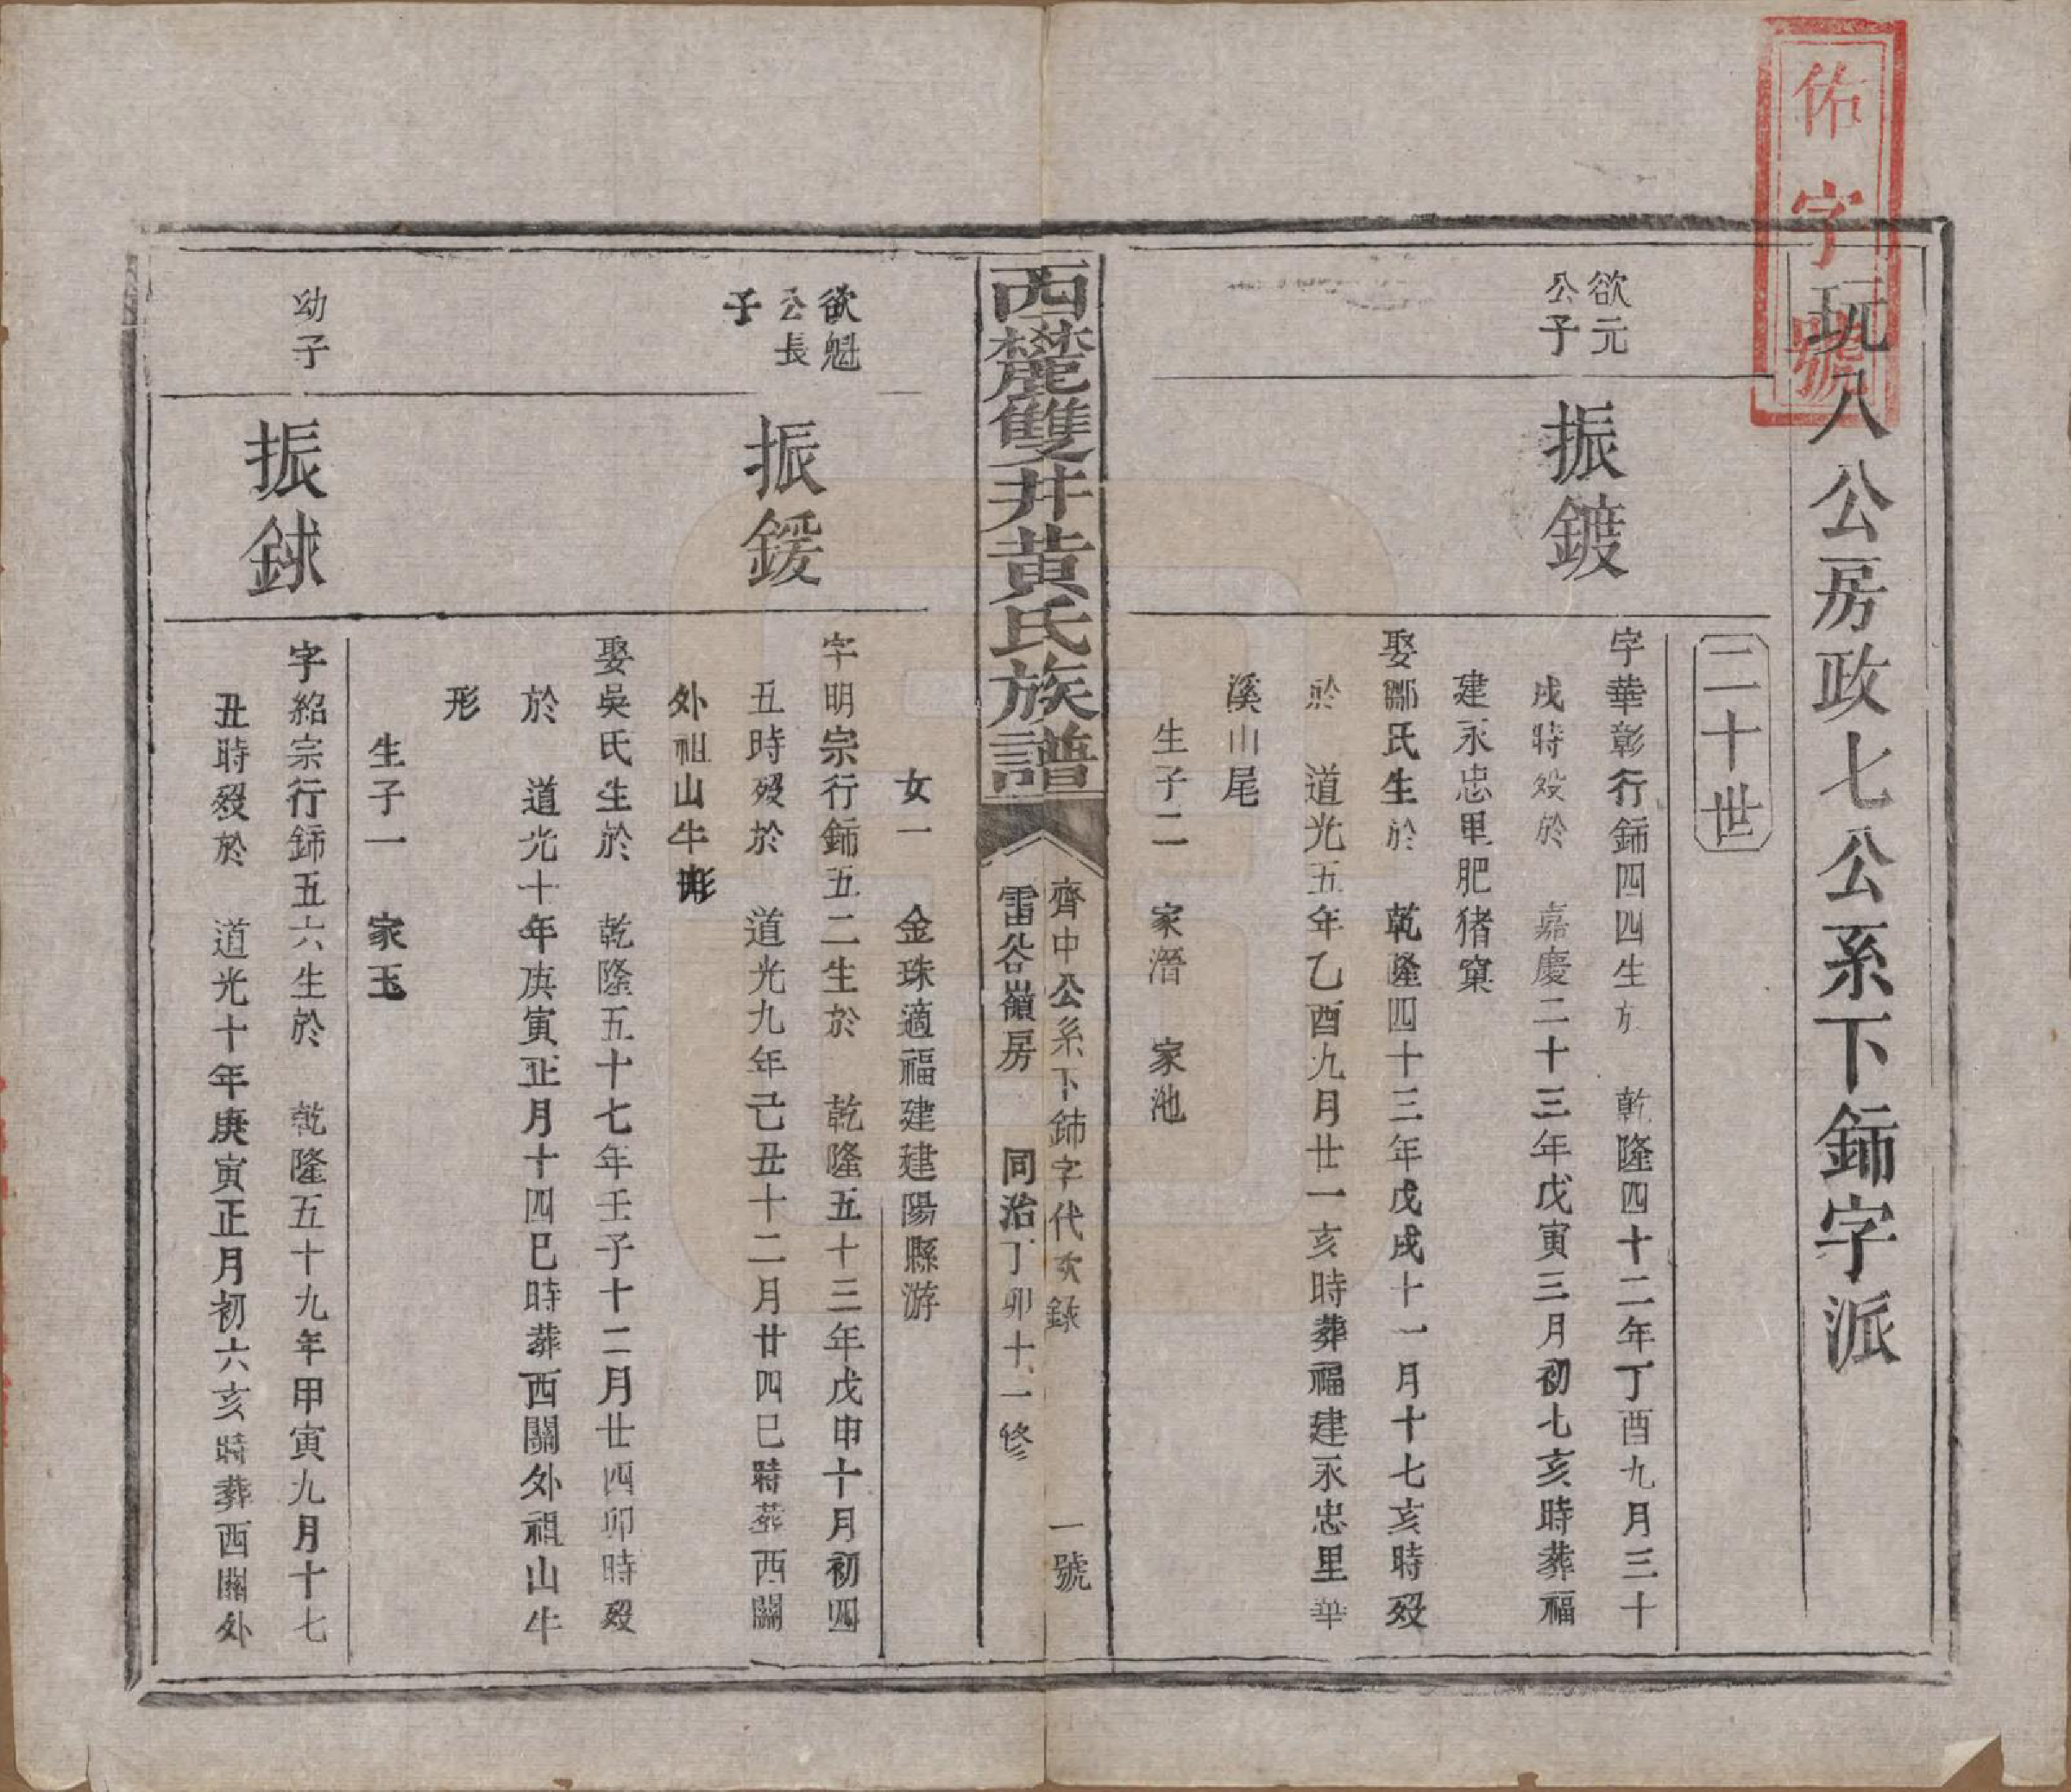 佑字號
玩八公房政七公系下鈰字派
二十世
欲元
公子
振鍍
字華彰行鈰四四生於 乾隆四十二年丁酉九月三十
戌時歿於 嘉慶二十三年戊寅三月初七亥時葬福
建永忠里肥猪窠
娶鄒氏生於 乾隆四十三年戊戌十一月十七亥時歿
於 道光五年乙酉九月廿一亥時葬福建永忠里華
溪山尾
生子二 家濳 家池
西麓雙井黃氏族譜
齊中公系下鈰字代次錄 一號
雷谷嶺房 同治丁卯十一修
女一 金珠適福建建陽縣游
欲魁
公長
子
振鍰
字明宗行鈰五二生於 乾隆五十三年戊申十月初四
丑時歿於 道光九年己丑十二月廿四巳時葬西關
外祖山牛形
娶吳氏生於 乾隆五十七年壬子十二月廿四卯時歿
於 道光十年庚寅正月十四巳時葬西關外祖山牛
形
生子一 家玉
幼子
振銶
字紹宗行鈰五六生於 乾隆五十九年甲寅九月十七
丑時歿於 道光十年庚寅正月初六亥時葬西關外